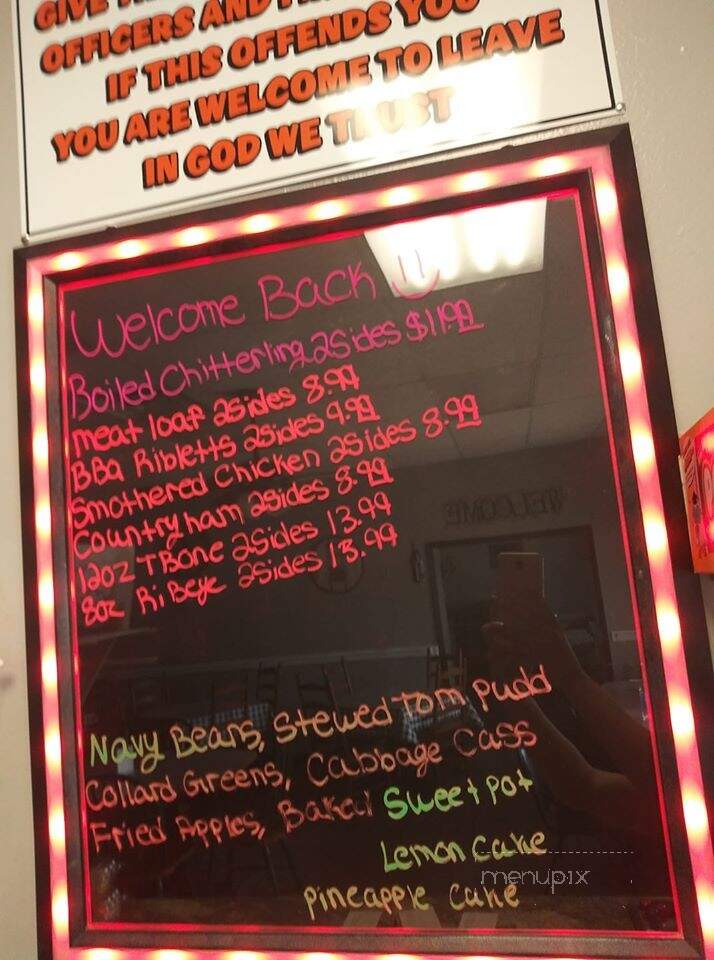 GIVE
OFFICERS AND
IF THIS OFFENDS YOU
YOU ARE WELCOME TO LEAVE
IN GOD WE TRUST
Welcome Back
Boiled Chitterling 2Sides $11.99
meat loaf 2sides 8.99
BBQ Ribletts 2Sides 9.99
Smothered Chicken 2Sides 8.99
Country ham 2Sides 8.99
12oz TBone 2Sides 13.99
8oz RiBeye 2Sides 13.99
Navy Beans, Stewed Tom pudd
Collard Greens, Cabbage Cass
Fried Apples, Baked Sweet pot
Lemon Cake
pineapple cake
menupix
WELCOME